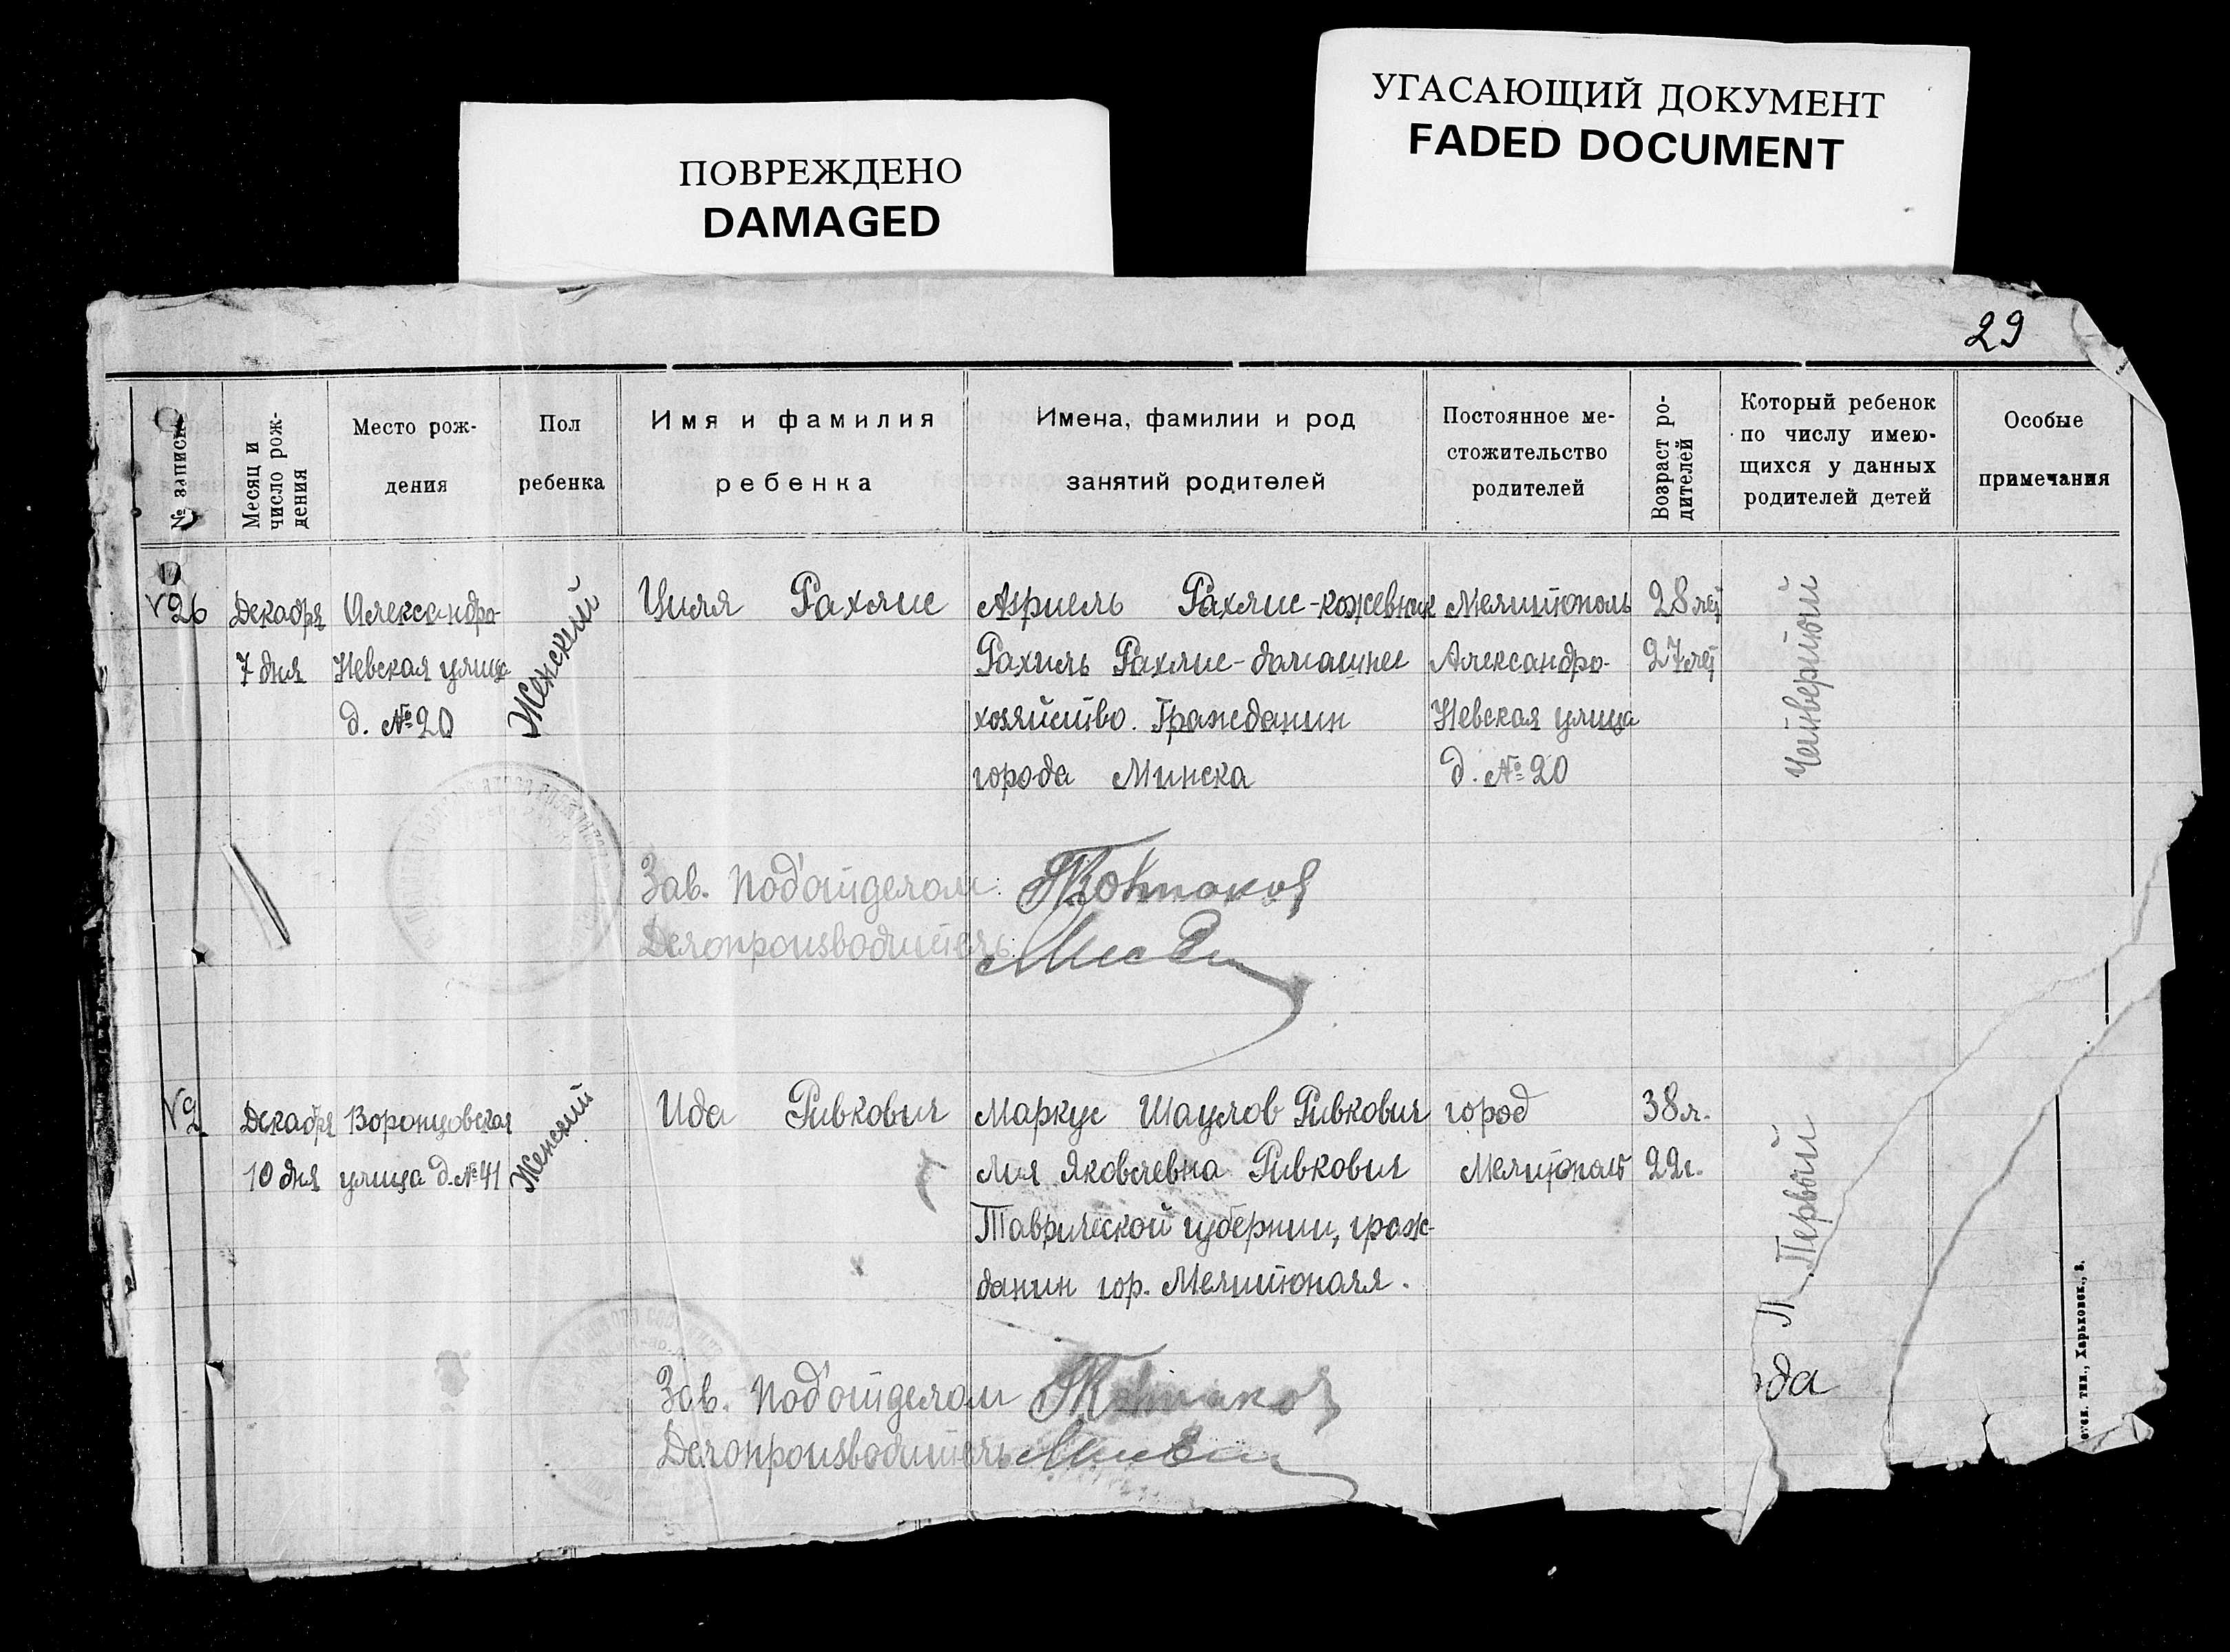 УГАСАЮЩИЙ ДОКУМЕНТ
FADED DOCUMENT
ПОВРЕЖДЕНО
DAMAGED
29
№ записи
Месяц и
число рож-
дения
Место рож-
дения
Пол
ребенка
Имя и фамилия
ребенка
Имена, фамилии и род
занятий родителей
Постоянное ме-
стожительство
родителей
Возраст ро-
дителей
Который ребенок
по числу имею-
щихся у данных
родителей детей
Особые
примечания
№26
Декабря
7 дня
Александро-
Невская улица
д. №20
Женский
Циля Рахлис
Азриель Рахлис-кожевник
Рахиль Рахлис-домашнее
хозяйство. Гражданин
города Минска
Мелитополь
Александро-
Невская улица
д. №20
28 лет
27 лет
Четвертый
Зав. Под'отделом
Делопроизводитель
№2
Декабря
10 дня
Воронцовская
улица д. №41
Женский
Ида Ривкович
Маркус Шаулов Ривкович
Лия Яковлевна Ривкович
Таврической губернии, граж-
данин гор. Мелитополя.
город
Мелитополь
38 л.
22 г.
Первый
Зав. Под'отделом
Делопроизводитель
да
тип., Харьковск., 3.